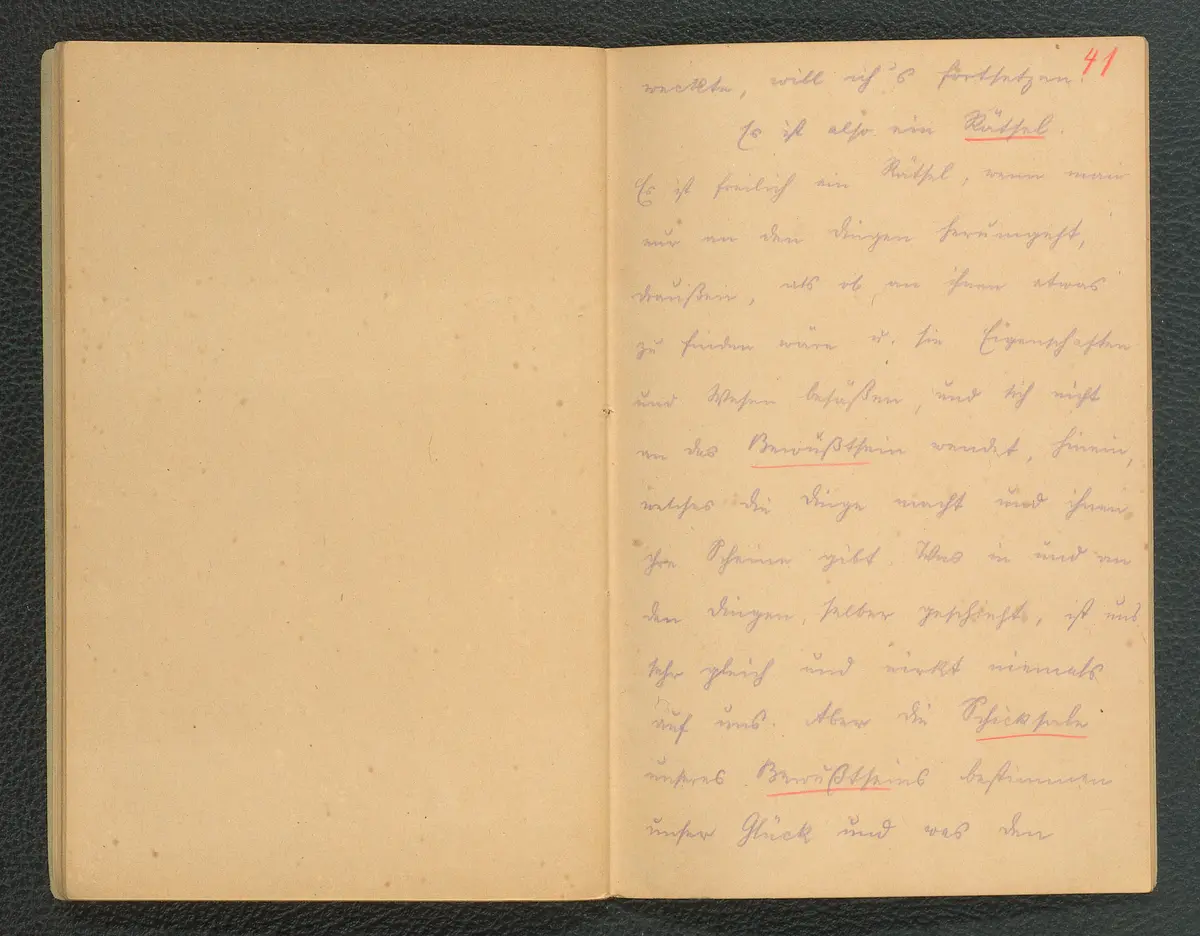 41
weckte, will ich's fortsetzen.
Es ist also ein Rätsel.
Es ist freilich ein Rätsel, wenn man
nur an den Dingen herumgeht,
draußen, als ob an ihnen etwas
zu finden wäre u. sie Eigenschaften
und Wesen besäßen, und sich nicht
an das Bewußtsein wendet, hinein,
welches die Dinge macht und ihnen
ihre Scheine gibt. Was in und an
den Dingen selber geschieht, ist uns
sehr gleich und wirkt niemals
auf uns. Aber die Schicksale
unseres Bewußtseins bestimmen
unser Glück und was den